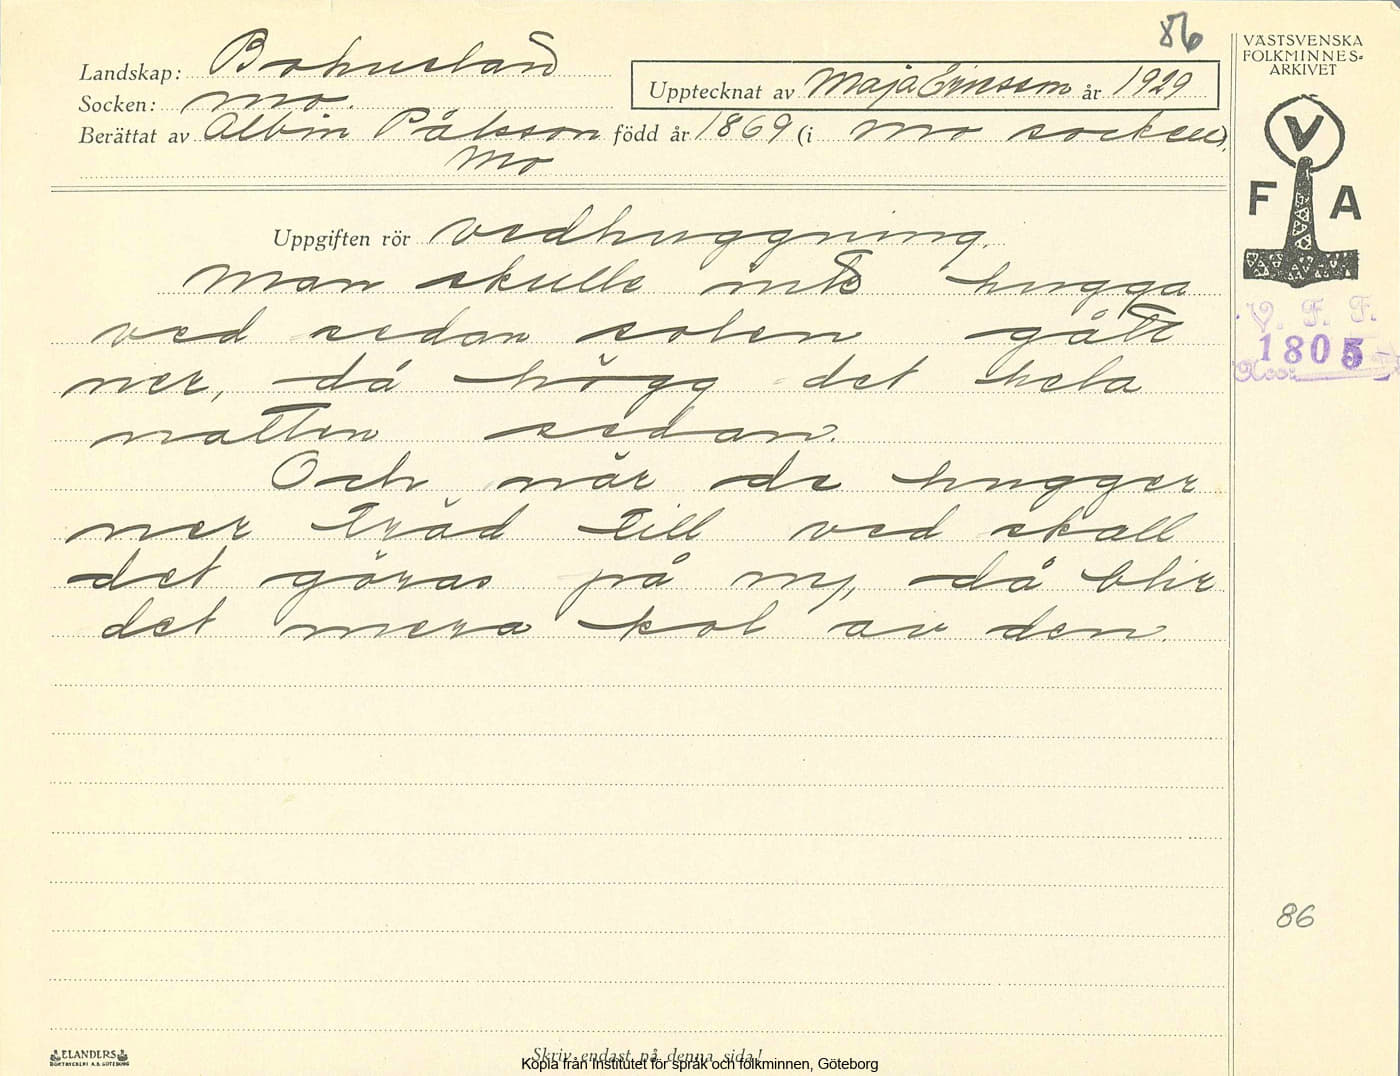 86
VÄSTSVENSKA
FOLKMINNES-
ARKIVET
Landskap: Bohuslän
Socken: Mo.
Upptecknat av Maja Ericsson år 1929
Berättat av Albin Pålsson född år 1869 (i Mo socken).
Mo
V
F A
V. F. F.
1805
Uppgiften rör vedhuggning.
Man skulle inte hugga
ved sedan solen gått
ner, då högg det hela
natten sedan.
Och när de hugger
ner träd till ved skall
det göras på ny, då blir
det mera kol av den.
86
ELANDERS
BOKTRYCKERI A.B. GÖTEBORG
Skriv endast på denna sida!
Kopia från Institutet för språk och folkminnen, Göteborg